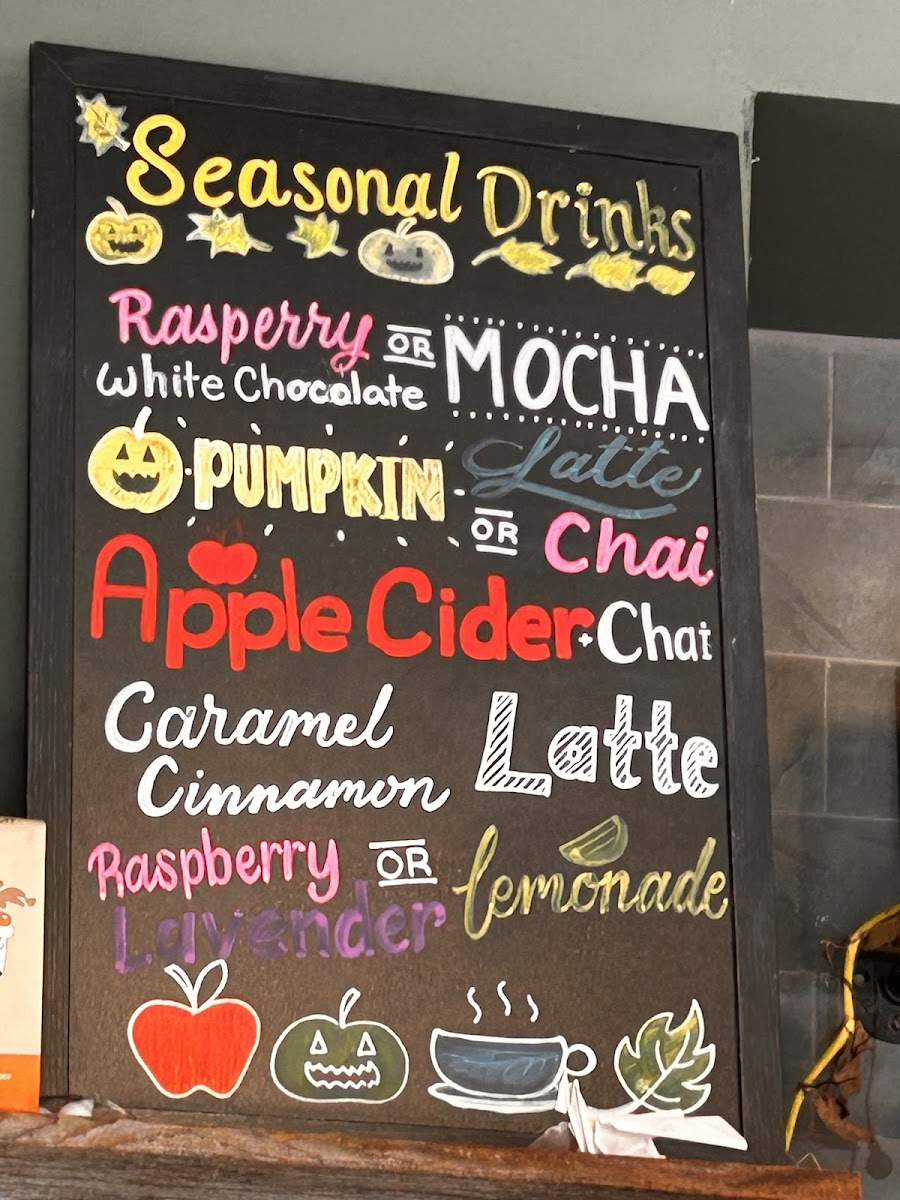 Seasonal Drinks
Rasperry OR MOCHA
White Chocolate
PUMPKIN Latte
OR Chai
Apple Cider + Chai
Caramel Latte
Cinnamon
Raspberry OR lemonade
Lavender